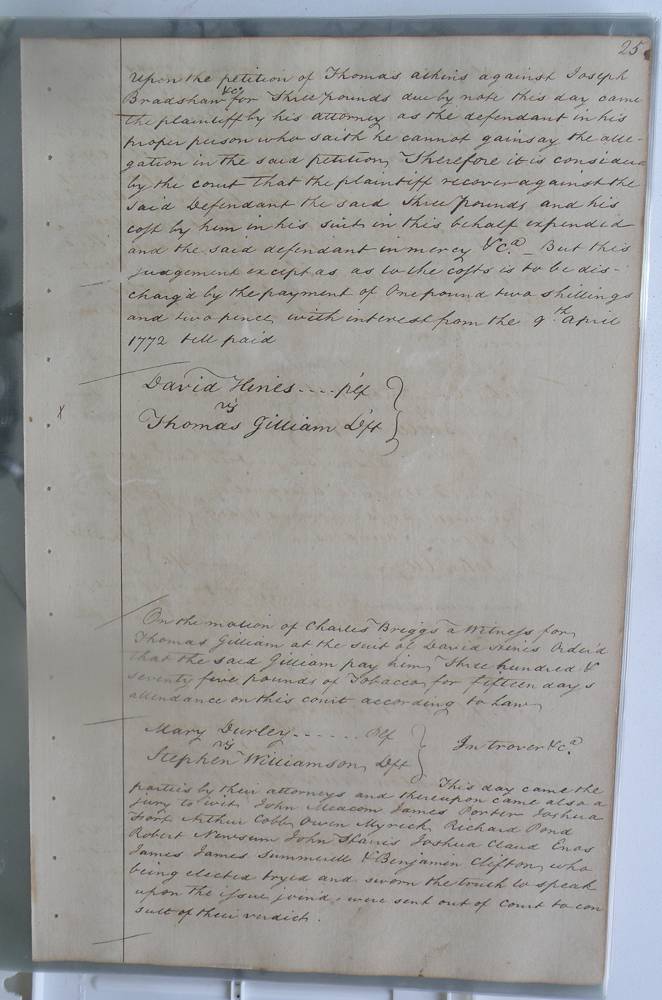 25
Upon the petition of Thomas atkins against Joseph
Bradshaw &c for Three pounds due by note this day came
the plaintiff by his attorney as the defendant in his
proper person who saith he cannot gainsay the alle-
gation in the said petition, Therefore it is consider'd
by the court that the plaintiff recover against the
said Defendant the said Three pounds and his
cost by him in his suit in this behalf expended
and the said defendant in mercy &c.a - But this
judgement except as as to the costs is to be dis-
charg'd by the payment of One pound two shillings
and two pence, with interest from the 9th april
1772 till paid
David Hines .... plf
vs
x
Thomas Gilliam Deft
On the motion of Charles Briggs a Witness for
Thomas Gilliam at the suit of David Hines Order'd
that the said Gilliam pay him, Three hundred &
seventy five pounds of Tobacco, for fifteen days
attendance on this court according to Law
Mary Durley ...... plf
vs
In trover &c.a
Stephen Williamson, Deft
This day came the
parties by their attorneys and thereupon came also a
jury to wit, John Meacom James Porter Joshua
Fort Arthur Cobb, Owen Myrick, Richard Pond
Robert Newsum John Joshua Claud Enos
James James Summerell & Benjamin Clifton, who
being elected tryed and sworn the truth to speak
upon the issue joined, were sent out of Court to con
sult of their verdict.